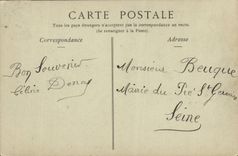 CARTE POSTALE
Tous les pays étrangers n'acceptent pas la correspondance au recto.
(Se renseigner à la Poste).
Correspondance
Adresse
Bon Souvenir
Monsieur Beuque
Mairie du Pré St Gervais
Seine